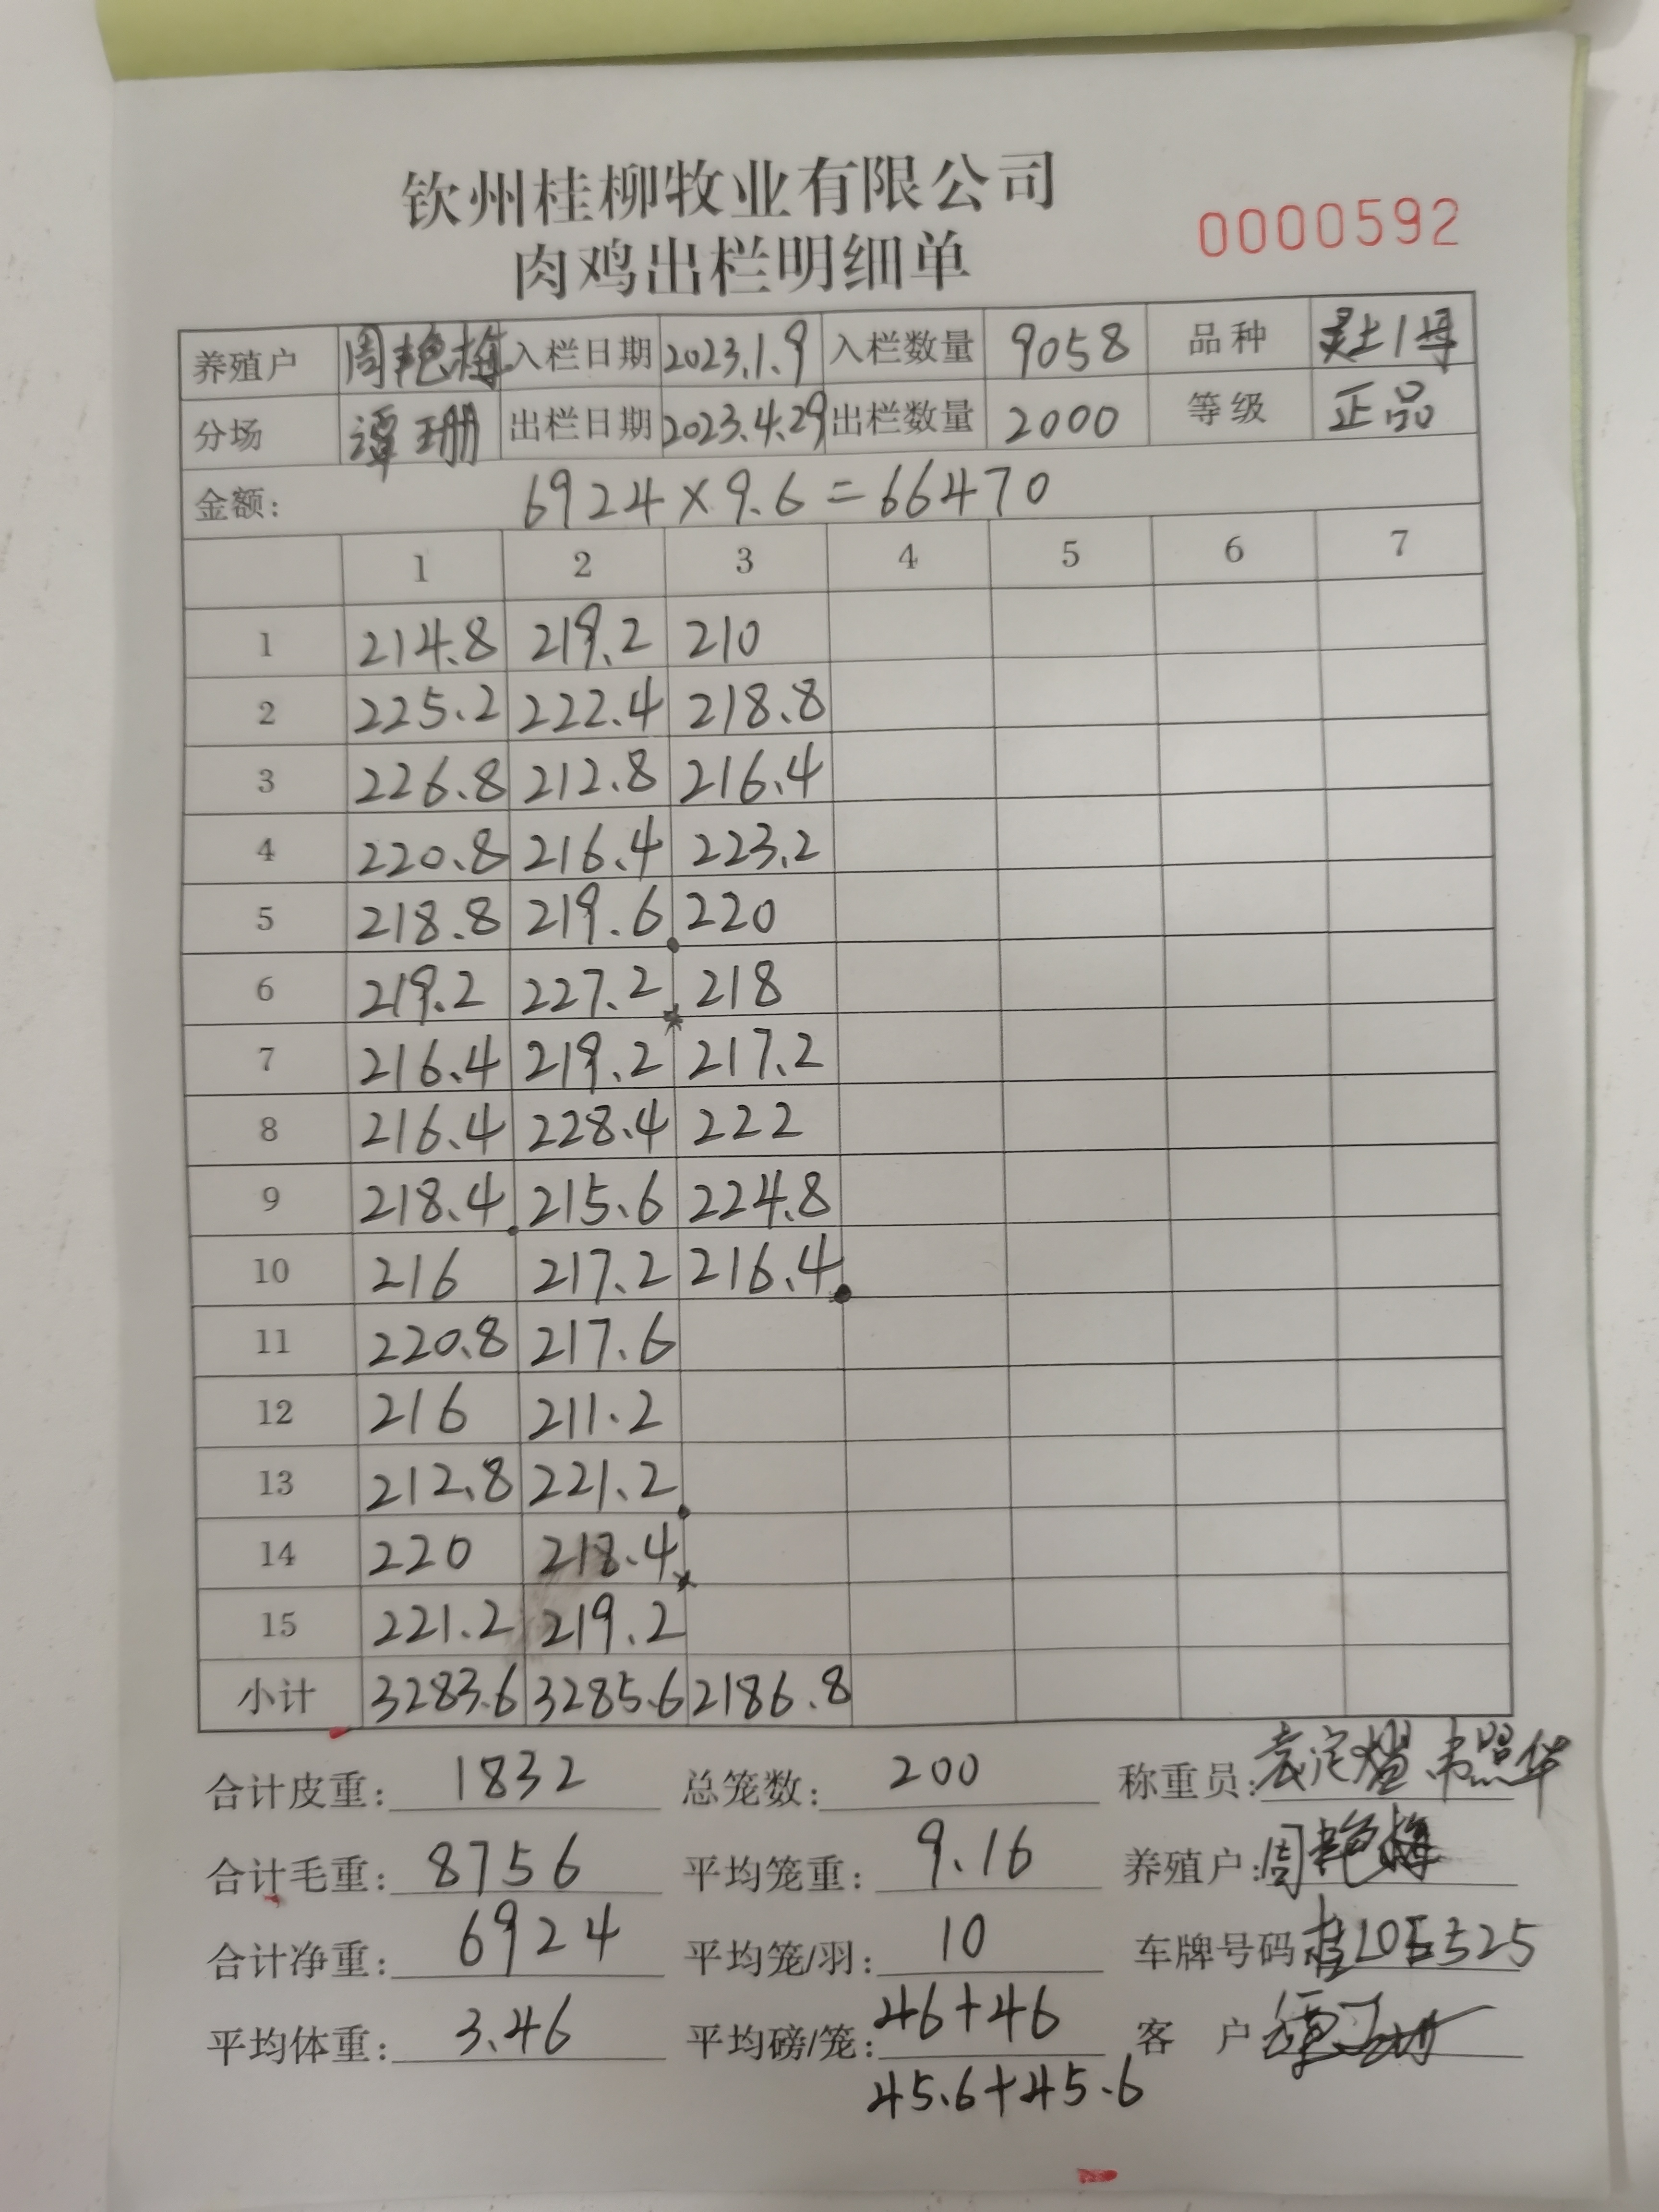 钦州桂柳牧业有限公司
肉鸡出栏明细单
0000592
养殖户 周艳梅 入栏日期 2023.1.9 入栏数量 9058 品种 灵土1母
分场 谭珊 出栏日期 2023.4.29 出栏数量 2000 等级 正品
金额: 6924×9.6=66470
1 2 3 4 5 6 7
1 214.8 219.2 210
2 225.2 222.4 218.8
3 226.8 212.8 216.4
4 220.8 216.4 223.2
5 218.8 219.6 220
6 219.2 227.2 218
7 216.4 219.2 217.2
8 216.4 228.4 222
9 218.4 215.6 224.8
10 216 217.2 216.4
11 220.8 217.6
12 216 211.2
13 212.8 221.2
14 220 218.4
15 221.2 219.2
小计 3283.6 3285.6 2186.8
合计皮重: 1832 总笼数: 200 称重员: 韦照华
合计毛重: 8756 平均笼重: 9.16 养殖户: 周艳梅
合计净重: 6924 平均笼/羽: 10 车牌号码
平均体重: 3.46 平均磅/笼: 46+46 客户
45.6+45.6